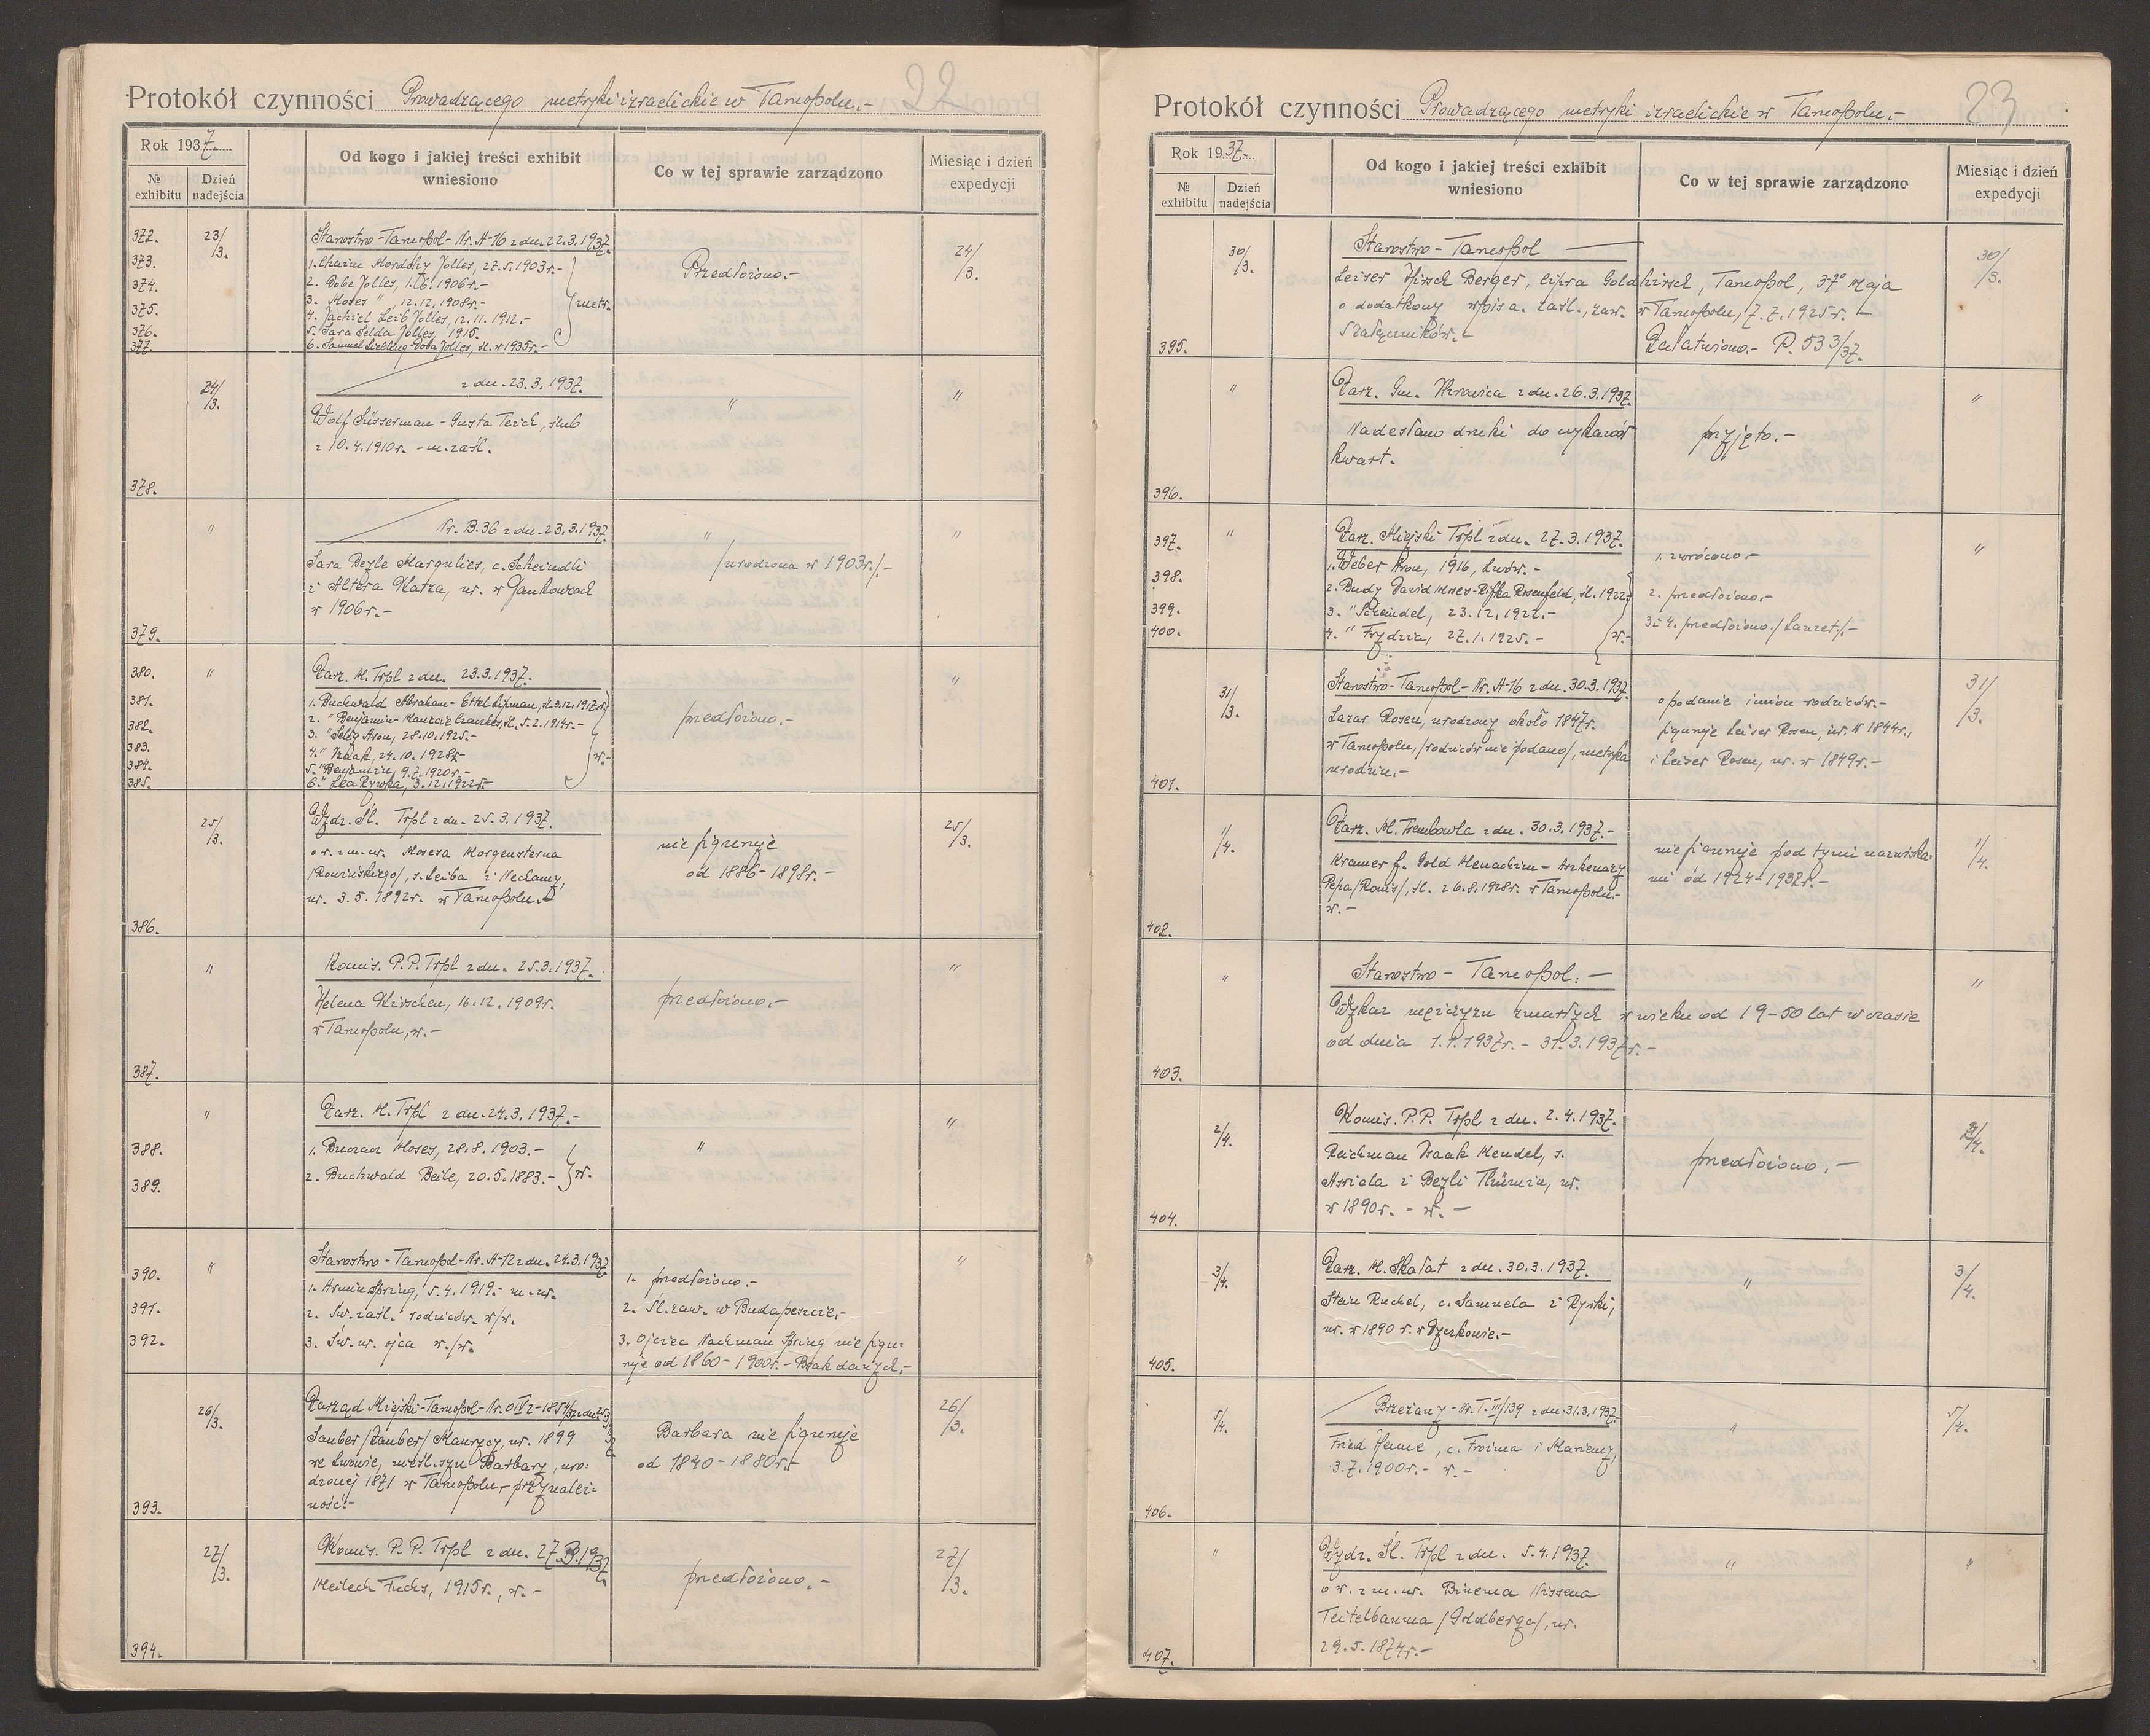 Protokół czynności Prowadzącego metryki izraelickie w Tarnopolu.- 22
Rok 1937.
№ exhibitu
Dzień nadejścia
Od kogo i jakiej treści exhibit wniesiono
Co w tej sprawie zarządzono
Miesiąc i dzień expedycji
372. 23/3. Starostwo-Tarnopol- Nr. A-16 z dn. 22.3.1937. Przedłożono.- 24/3.
373. 1. Chaim Mordchy Jolles, 27.5.1903r.-
374. 2. Dobe Jolles, 1.06.1906r.-
375. 3. Moses " , 12.12.1908r.- metr.
4. Jachiel Leib Jolles, 12.11.1912.-
376. 5. Sara Selda Jolles, 1915.
377. 6. Samuel Liebling-Doba Jolles, śl. w 1935r.-
24/3. z dn. 23.3.1937. " "
Wolf Süsserman - Gusta Teich, ślub
z 10.4.1910r. - m. zaśl.
378.
" Nr. B.36 z dn. 23.3.1937. " "
Sara Beyle Margulies, c. Scheindli /urodzona w 1903r./.-
i Altera Katza, ur. w Jankowcach
w 1906r.-
379.
380. " Zarz. M. Trpl z dn. 23.3.1937. "
381. 1. Buchwald Abraham- Ettel Lipman, śl. 3.12.1912r.
382. 2. " Benjamin- śl. 5.2.1914r.- przedłożono.-
383. 3. " Selig Aron, 28.10.1925.-
384. 4. " Izaak, 24.10.1928r.- w.-
5. " Benjamin, 9.7.1920r.-
385. 6. " Lea Rywka, 3.12.1922r.-
25/3. Wydz. Śl. Trpl z dn. 25.3.1937. nie figuruje 25/3.
o w. z m. ur. Mosera Morgensterna od 1886-1898r.-
/Rowińskiego/, s. Leiba i Nechamy,
ur. 3.5.1892r. w Tarnopolu.-
386.
" Komis. P.P. Trpl z dn. 25.3.1937. "
Helena Kirschen, 16.12.1909r. przedłożono.-
w Tarnopolu, w.-
387.
" Zarz. M. Trpl z dn. 24.3.1937.- "
388. 1. Buczacz Moses, 28.8.1903.- "
389. 2. Buchwald Beile, 20.5.1883.- w.
Starostwo-Tarnopol-Nr. A-12 z dn. 24.3.1937 "
390. " 1. Armin Spring, 5.4.1919.- m. ur. 1. przedłożono.-
391. 2. Św. zaśl. rodziców. w/w. 2. Śl. zaw. w Budapeszcie.-
392. 3. Św. ur. ojca w./w. 3. Ojciec Nachman Spring nie figu-
ruje od 1860-1900r.- Brak danych.-
26/3. Zarząd Miejski-Tarnopol-Nr. 26/3.
Sauber /Zauber/ Maurycy, ur. 1899 Barbara nie figuruje
we Lwowie, nieśl. syn Barbary, uro- od 1840-1880r.-
dzonej 1871 w Tarnopolu,- przynależ-
ność.-
393.
27/3. Komis. P.P. Trpl z dn. 27.3.1937. 27/3.
Meilech Fuchs, 1915r., w.- przedłożono.-
394.
Protokół czynności Prowadzącego metryki izraelickie w Tarnopolu.- 23
Rok 1937.
№ exhibitu
Dzień nadejścia
Od kogo i jakiej treści exhibit wniesiono
Co w tej sprawie zarządzono
Miesiąc i dzień expedycji
30/3. Starostwo-Tarnopol 30/3.
Leiser Hirsch Berger, Cipra Goldhirsch, Tarnopol, 3-go Maja
o dodatkowy wpis a. zaśl., zaw. w Tarnopolu, 7.7.1925r.-
5 załączników.-
395. Załatwiono.- P. 533/37.
" Zarz. Gm. z dn. 26.3.1937. "
Nadesłano druki do wykazów przyjęto.-
kwart.
396.
397. " Zarz. Miejski Trpl z dn. 27.3.1937. "
1. Weber Aron, 1916, Lwów.- 1. zwrócono.-
398. 2. Budy Dawid Moses-Rifka Rosenfeld, śl. 1922. 2. przedłożono.-
399. 3. " Scheindel, 23.12.1922.-
400. 4. " Frydzia, 27.1.1925.- w.- 3 i 4. przedłożono.
31/3. Starostwo-Tarnopol-Nr. A-16 z dn. 30.3.1937. 31/3.
Lazar Rosen, urodzony około 1847r. o podanie imion rodziców.-
w Tarnopolu, /rodziców nie podano/, metryka figuruje Leiser Rosen, ur. w 1844r.,
urodzin.- i Leiser Rosen, ur. w 1849r.-
401.
1/4. Zarz. M. Trembowla z dn. 30.3.1937.- 1/4.
Kramer f. Gold Menachim- Aszkenazy nie figuruje pod tymi nazwiska-
Pepa /Ronis/, śl. 26.8.1928r. w Tarnopolu.- mi od 1924-1932r.-
w.-
402.
" Starostwo- Tarnopol.- "
Wykaz mężczyzn zmarłych w wieku od 19-50 lat w czasie
od dnia 1.1.1937r. - 31.3.1937r.-
403.
2/4. Komis. P.P. Trpl z dn. 2.4.1937. 2/4.
Reichman Izaak Mendel, s. przedłożono.-
Asriela i Beyli Thürm, ur.
w 1890r. - w.-
404.
3/4. Zarz. M. Skałat z dn. 30.3.1937. " 3/4.
Stein Ruchel, c. Samuela i Rywki,
ur. w 1890 r. w
405.
5/4. Brzeżany-Nr. T.III/139 z dn. 31.3.1937. " 5/4.
Fried Henie, c. Froima i Mariemy,
3.7.1900r.- w.-
406.
" Wydz. Śl. Trpl z dn. 5.4.1937. " "
o w. z m. ur. Binema Nissena
Teitelbauma /Goldberga/, ur.
29.5.1874r.-
407.